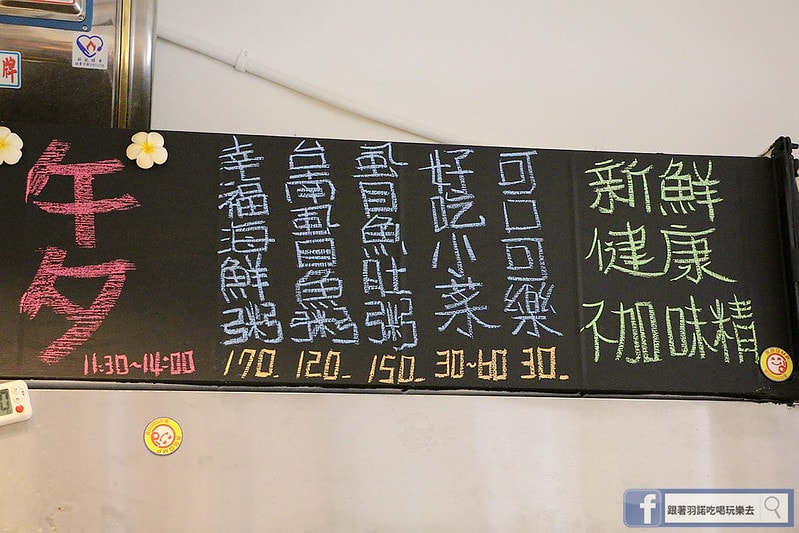 牌
午夕
11:30~14:00
幸福海鮮粥
170.
台南虱目魚粥
120.
虱目魚肚粥
150.
好吃小菜
30~60
可口可樂
30.
新鮮
健康
不加味精
跟著羽諾吃喝玩樂去